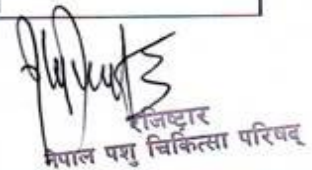 रजिष्ट्रार
नेपाल पशु चिकित्सा परिषद्